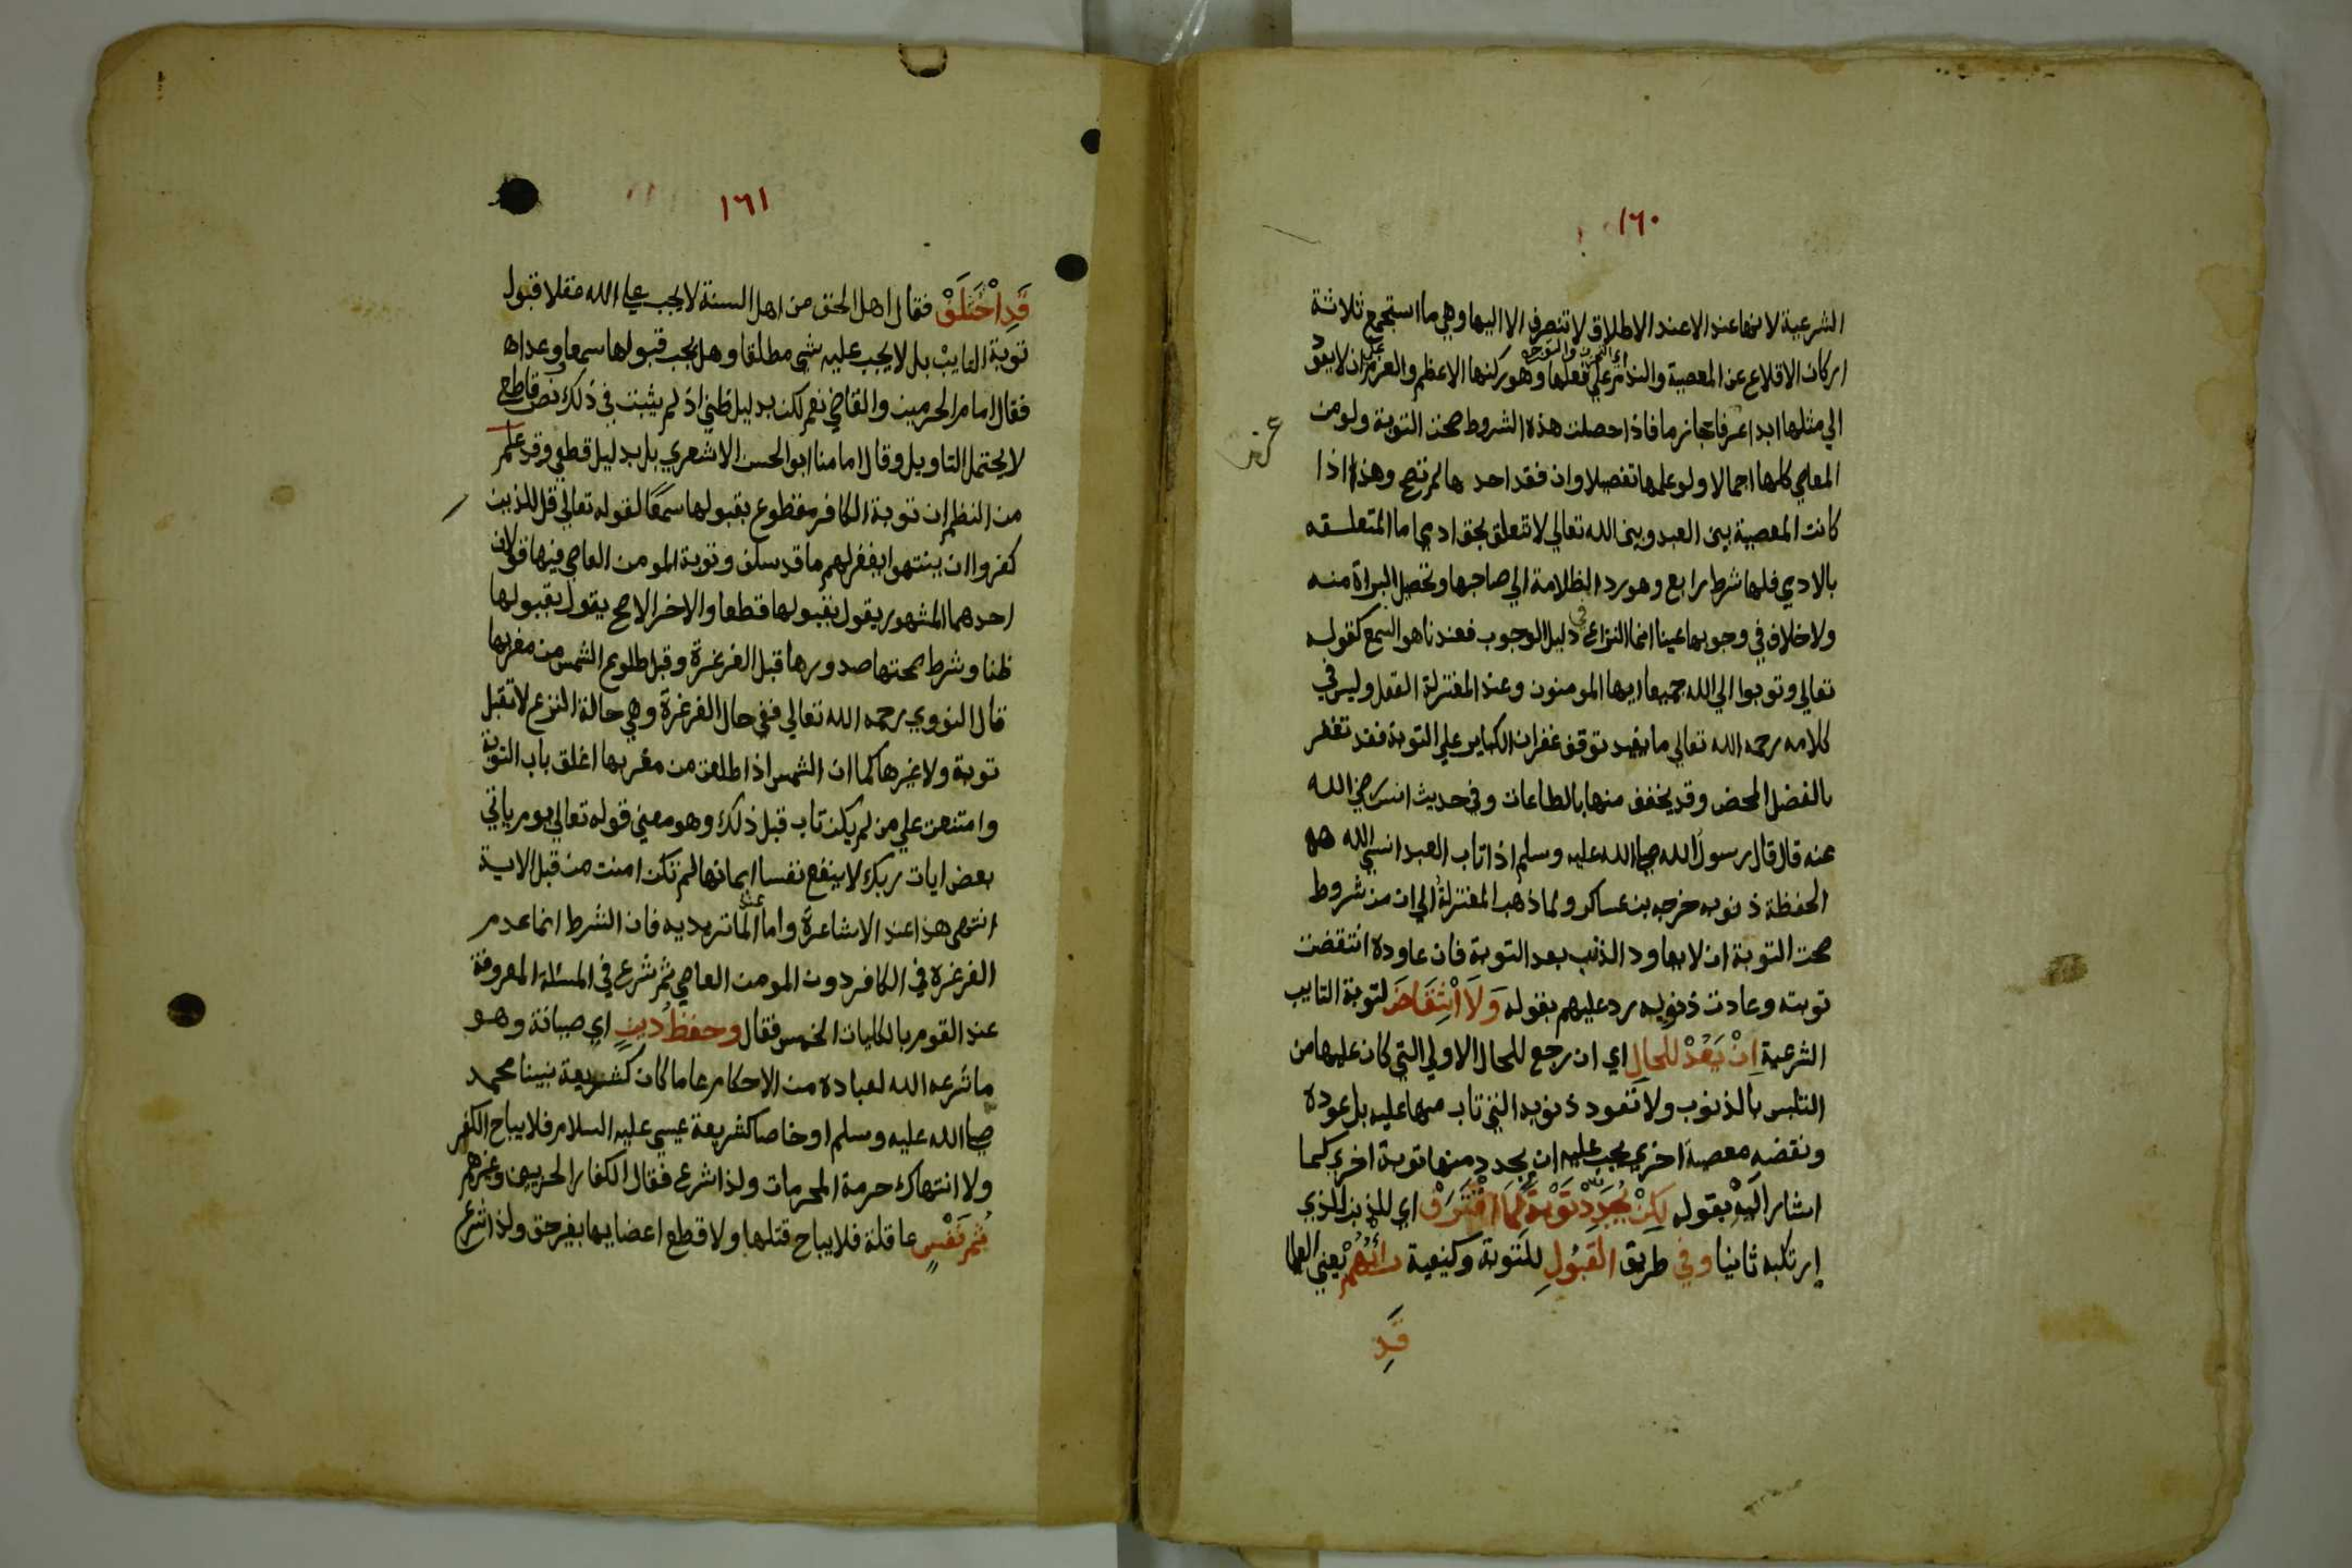 ١٦٠
الشرعية لانها عند الاعند الاطلاق لا تنصرف الا اليها وهي ما استجمع ثلاثة
اركان الاقلاع عن المعصية والندم علي فعلها وهو ركنها الاعظم والعزم ان لا يعود
الي مثلها ابدا عزما جازما فاذا حصلت هذه الشروط صحت التوبة ولو من
المعاصي كلها اجمالا ولو علمها تفصيلا وان فقد احدها لم تصح وهذا اذا
كانت المعصية بين العبد وبين الله تعالي لا تتعلق بحق ادمي اما المتعلقه
بالادمي فلها شرط رابع وهو رد الظلامة الي صاحبها وتحصيل البراة منه
ولا خلاف في وجوبها عينا انما النزاع في دليل الوجوب فعندنا هو السمع كقوله
تعالي وتوبوا الي الله جميعا ايها المومنون وعند المعتزلة العقل وليس في
كلامه رحمه الله تعالي ما يفيد توقف غفران الكباير علي التوبة فقد تغفر
بالفضل المحض وقد يخفف منها بالطاعات وفي حديث انس رضي الله
عنه قال قال رسول الله صلي الله عليه وسلم اذا تاب العبد انسي الله
الحفظة ذنوبه خرجه بن عساكر ولما ذهب المعتزلة الي ان من شروط
صحت التوبة ان لا يعاود الذنب بعد التوبة فان عاوده انتقضت
توبته وعادت ذنوبه رد عليهم بقوله وَلَا انْتِقَاضَ لتوبة التايب
الشرعية اِنْ يَعُدْ للحالِ اي ان رجع للحال الاولي التي كان عليها من
التلبس بالذنوب ولا تعود ذنوبه التي تاب منها عليه بل عوده
ونقضه معصية اخري يجب عليه ان يجدد منها توبة اخري كما
اشار اليه بقوله لكِنْ يُجَدِّدْ تَوْبَةً لِمَا اقْتَرَفْ اي للذنب الذي
ارتكبه ثانيا وفي طريق القَبُولِ للتوبة وكيفية رأيُهُمْ يعني العلما
قَدِ
١٦١
قَدِ اخْتَلَفْ فقال اهل الحق من اهل السنة لا يجب علي الله عقلا قبول
توبة التايب بل لا يجب عليه شي مطلقا وهل يجب قبولها سمعا وعداه
فقال امام الحرمين والقاضي نعم لكن بدليل ظني اذ لم يثبت في ذلك نص قاطع
لا يحتمل التاويل وقال امامنا ابو الحسن الاشعري بل بدليل قطعي وقد علم
من النظم ان توبة الكافر مقطوع بقبولها سمعًا لقوله تعالي قل للذين
كفروا ان ينتهوا يغفر لهم ما قد سلف وتوبة المومن العاصي فيها قولان
احدهما المشهور يقول بقبولها قطعا والاخر الاصح يقول بقبولها
ظنا وشرط صحتها صدورها قبل الغرغرة وقبل طلوع الشمس من مغربها
قال النووي رحمه الله تعالي ففي حال الغرغرة وهي حالة النزع لا تقبل
توبة ولا غيرها كما ان الشمس اذا طلعت من مغربها اغلق باب التوبة
وامتنعت علي من لم يكن تاب قبل ذلك وهو معني قوله تعالي يوم ياتي
بعض ايات ربك لا ينفع نفسا ايمانها لم تكن امنت من قبل الاية
انتهي هذا عند الاشاعرة واما عند الماتريديه فان الشرط انما عدم
الغرغرة في الكافر دون المومن العاصي ثم شرع في المسئلة المعروفة
عند القوم بالكليات الخمس فقال وحفظُ دينٍ اي صيانة وهو
ما شرعه الله لعباده من الاحكام عاما كان كشريعة نبينا محمد
صلي الله عليه وسلم او خاصا كشريعة عيسي عليه السلام فلا يباح الكفر
ولا انتهاك حرمة المحرمات ولذا شرع فقال الكفار الحربيين وغيرهم
ثُمَّ نَفْسٍ عاقلة فلا يباح قتلها ولا قطع اعضايها بغير حق ولذا شرع